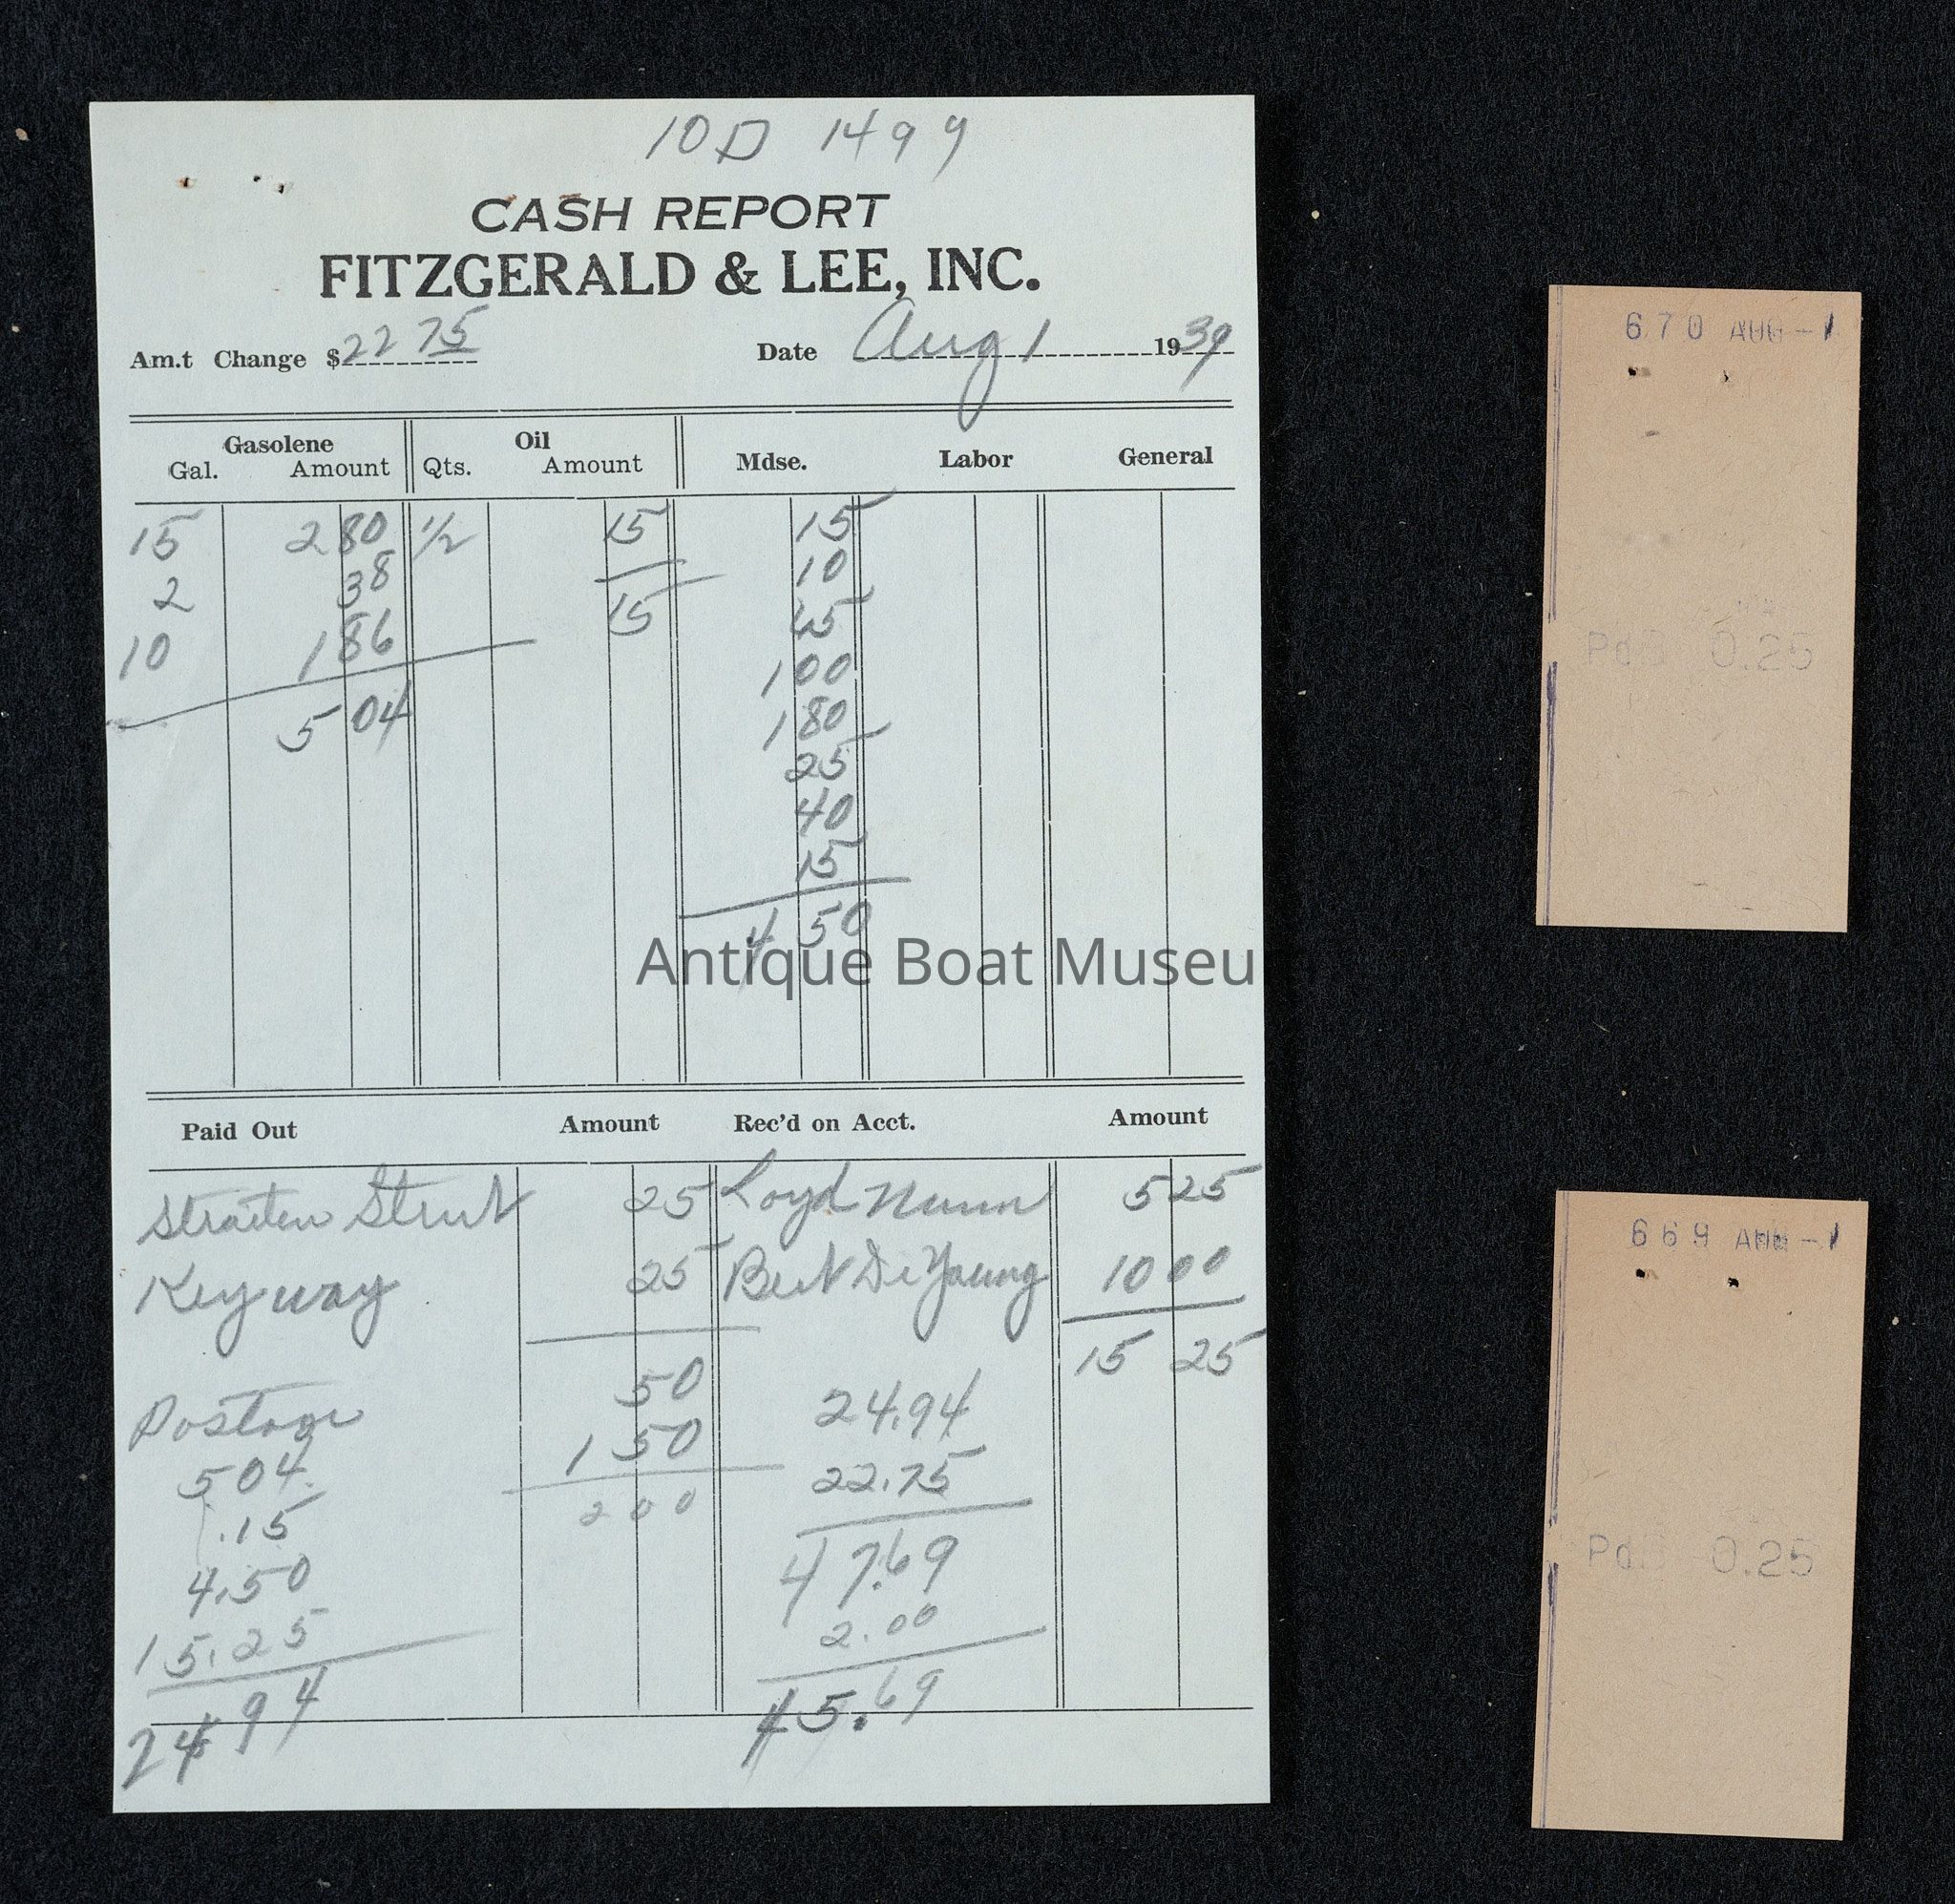 10D 1499
CASH REPORT
FITZGERALD & LEE, INC.
Am.t Change $ 22 75 Date Aug 1 1939
Gasolene Oil
Gal. Amount Qts. Amount Mdse. Labor General
15 2 80 1/2 15 15
2 38 10
10 1 86 15 45
5 04 1 00
1 80
25
40
15
4 50
Antique Boat Museu
Paid Out Amount Rec'd on Acct. Amount
Straiten Strut 25 Loyd Nunn 5 25
Key way 25 Bert De Young 10 00
50 15 25
Postage 1 50 24.94
504 2 00 22.75
.15 47.69
4.50 2.00
15.25 45.69
24 94
670 AUG -1
Pd 0.25
669 AUG -1
Pd 0.25